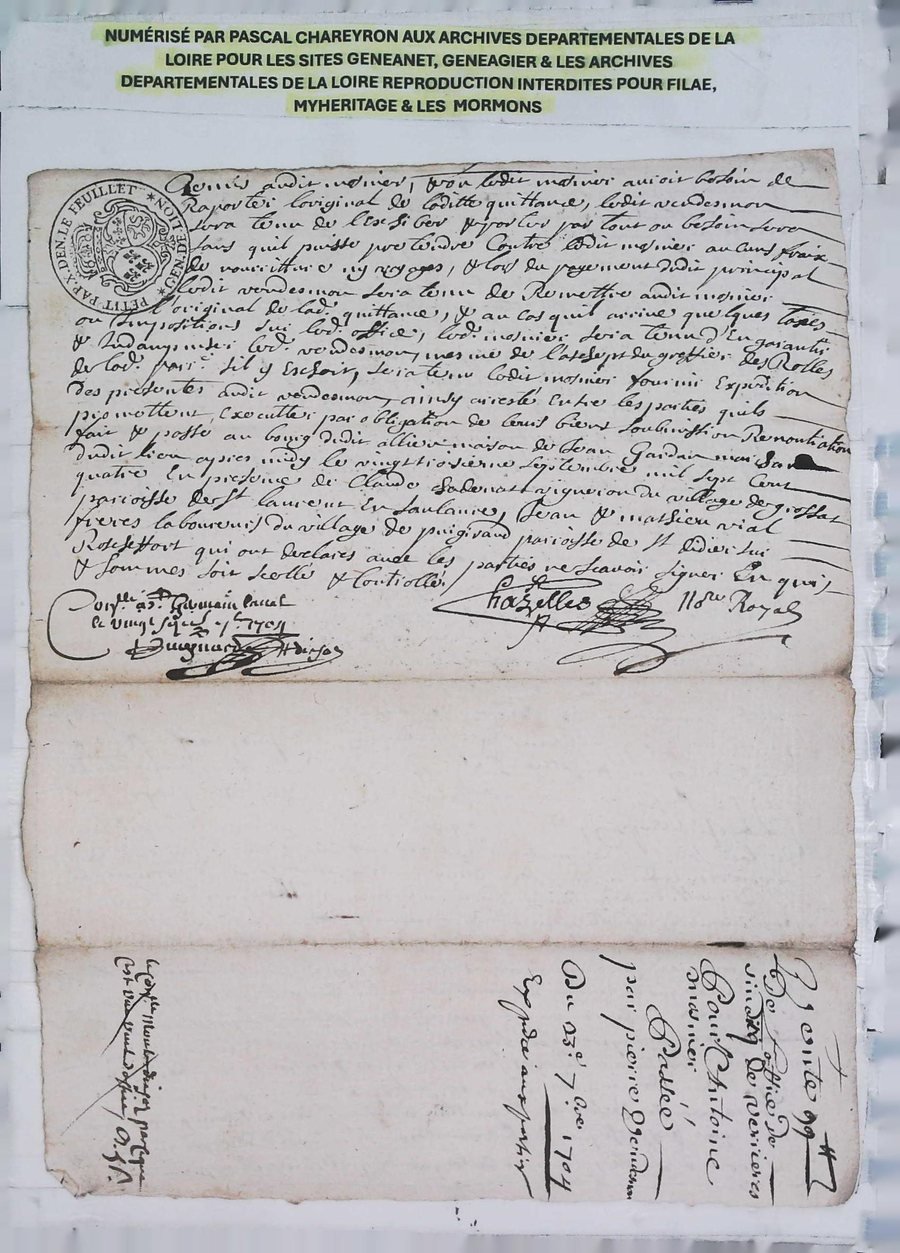 NUMÉRISÉ PAR PASCAL CHAREYRON AUX ARCHIVES DEPARTEMENTALES DE LA
LOIRE POUR LES SITES GENEANET, GENEAGIER & LES ARCHIVES
DEPARTEMENTALES DE LA LOIRE REPRODUCTION INTERDITES POUR FILAE,
MYHERITAGE & LES MORMONS
GEN.DE.LION
PETIT.PAP.X.DEN.LE FEUILLET
Remis audit mosnier, & ou ledit mosnier auroit besoin de
Raporter loriginal de laditte quittance, ledit vendesmon
sera tenu de l'Exiber & porter par tout ou besoin sera
sans quil puisse pretendre Contre ledit mosnier aucuns fraix
de nouritture ny voyages, & lors du payement dudit principal
ledit vendesmon sera tenu de Remettre audit mosnier
l'original de lad. quittance, & au cas quil arrive quelques taxes
ou Impositions sur led. office, led. mosnier sera tenu d'En garantir
& Indampniser led. vendesmon, mesme de du greffier des Rolles
de lad. parr. sil y Eschoit, sera tenu ledit mosnier fournir Expedition
Des presentes audit vendesmon, ainsy arresté Entre les parties quils
promettent Executter par obligation de leurs biens soubmission Renontiation
fait & passé au bourg dudit allieu maison de Jean
dudit lieu apres midy le vingttroisieme septembre mil sept Cent
quatre En presence de Claude vigneron du village de grossat
parroisse de St laurent En Jean & mathieu vial
freres laboureurs du village de parroisse de St didier sur
Rocheffort qui ont declarés avec les parties ne scavoir signer En quis
& sommes soit scellé & Controllé
Chazelles Nore Royal
Conllé a St Germain Laval
le vingt 7bre 1704
Vente 99 ll
De l'office de
sindicq de verrieres
Pour Anthoine
mosnier
Passée
par pierre Vendesmon
Du 23e 7bre 1704
Expedié aux parties